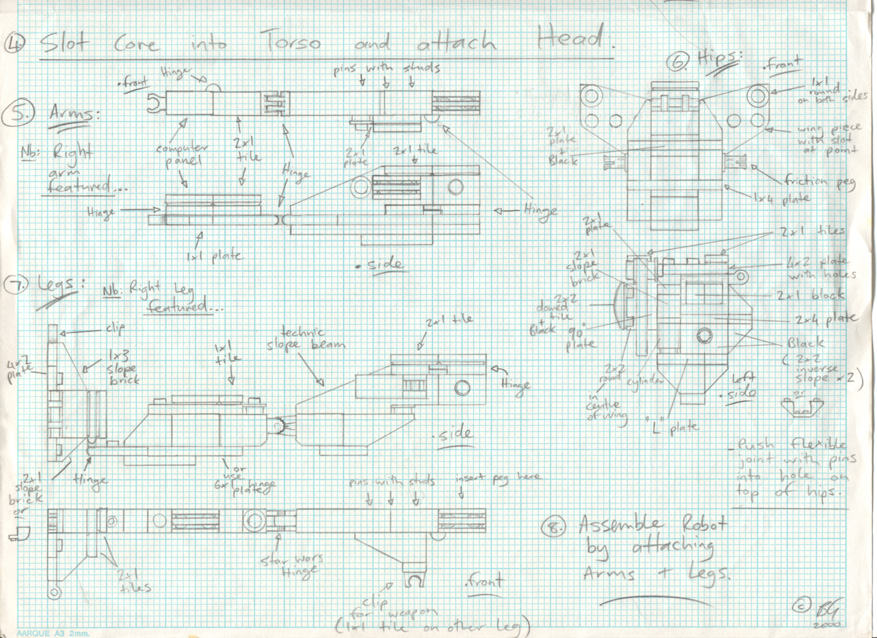 ④ Slot Core into Torso and attach Head.
⑤. Arms:
Nb: Right
arm
featured...
.front
Hinge
pins with studs
computer
panel
2x1
tile
Hinge
2x1
plate
2x1 tile
Hinge
1x1 plate
Hinge
. side
⑥ Hips:
.front
1x1
round
on both sides
2x1
plate
+
Black
wing piece
with slot
at point
friction peg
1x4 plate
2x1
plate
2x1 tiles
2x1
slope
brick
4x2 plate
with holes
2x2
domed
tile
+
Black
2x1 block
90°
plate
2x4 plate
Black
(2x2
inverse
slope x2)
or
2x2
round
cylinder
in
centre
of wing
"L" plate
left
. side
- Push flexible
joint with pins
into hole on
top of hips.
⑦. Legs:
Nb: Right Leg
featured...
clip
4x2
plate
1x3
slope
brick
1x1
tile
technic
slope beam
2x1 tile
Hinge
. side
2x1
slope
brick
or
Hinge
or
use
6x1 hinge
plate
pins with studs
insert peg here
2x1
tiles
Star Wars
Hinge
clip
for weapon
(1x1 tile on other leg)
.front
⑧. Assemble Robot
by attaching
Arms + Legs.
© BG
2000
AARQUE A3 2mm.